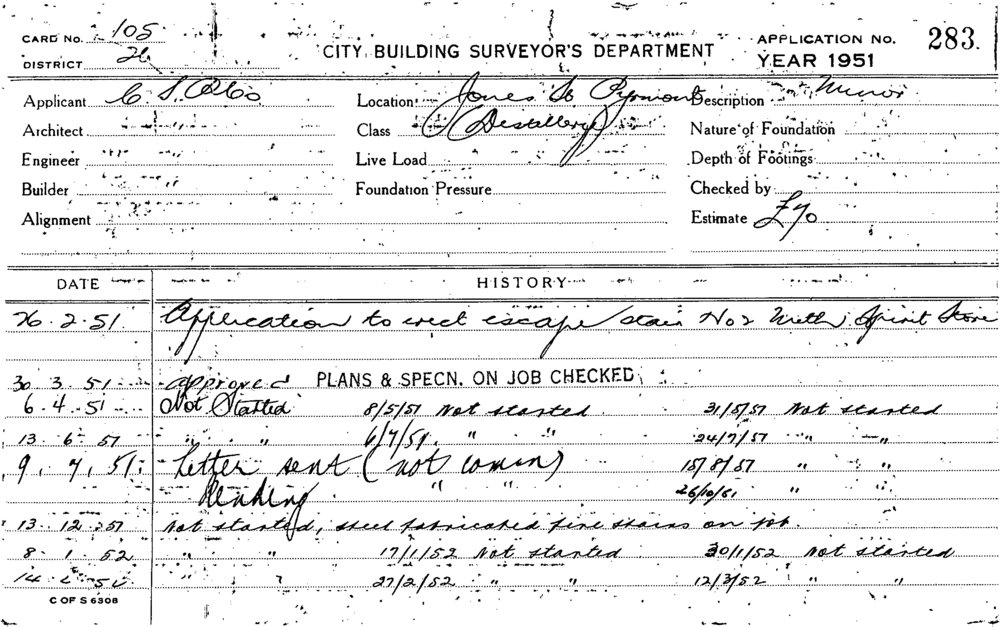 CARD No. 105
DISTRICT 26
CITY BUILDING SURVEYOR'S DEPARTMENT
APPLICATION No. 283.
YEAR 1951
Applicant C. S. R. Co Location Jones St Pyrmont Description Minor
Architect Class (Destillery) Nature of Foundation
Engineer Live Load Depth of Footings
Builder Foundation Pressure Checked by
Alignment Estimate £70
DATE HISTORY
26.2.51 Application to erect escape stair No 2 Meth. Spirit Store
30 3. 51 approved PLANS & SPECN. ON JOB CHECKED
6.4.51 Not Started 8/5/51 Not started 31/5/51 Not started
13. 6. 51 " " 6/7/51 " " 24/7/51 " "
9. 7. 51 Letter sent (not comm) 15/8/51 " "
Reading " " 26/10/51 " "
13 12 51 Not started, steel fabricated fire stairs on job.
8. 1. 52 " " 17/1/52 Not started 30/1/52 Not started
14 2 52 " " 27/2/52 " " 12/3/52 " "
C OF S 6308